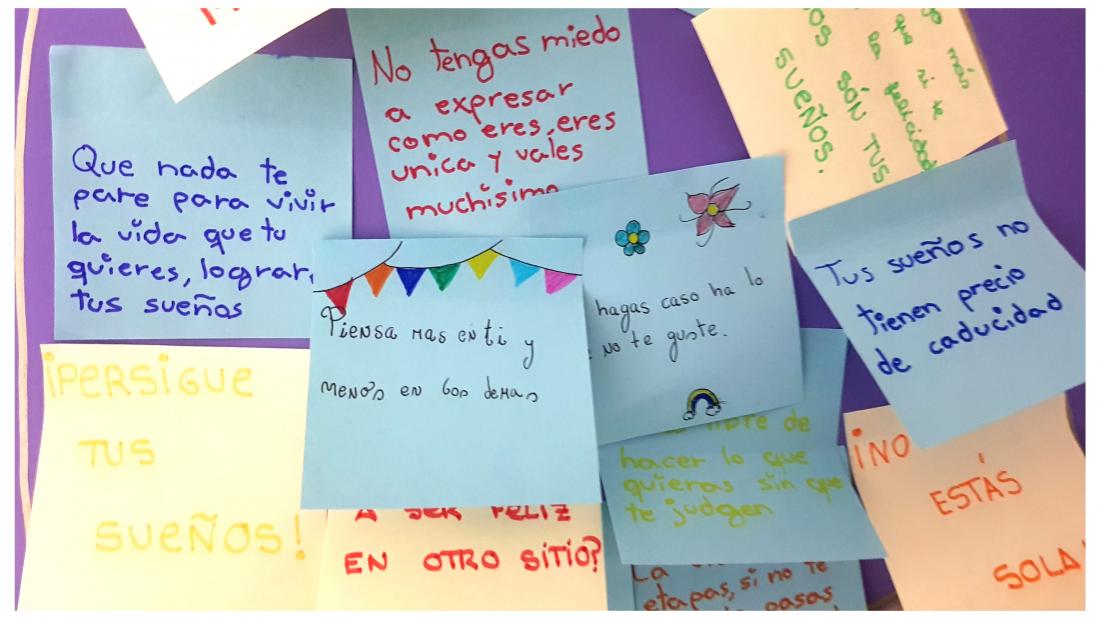 Que nada te
pare para vivir
la vida que tu
quieres, lograr
tus sueños
No tengas miedo
a expresar
como eres, eres
unica y vales
muchísimo
más
ni te
caducidad
SÓN TUS
SUEÑOS.
hagas caso ha lo
no te guste.
Tus sueños no
tienen precio
de caducidad
Piensa mas en ti y
menos en los demas
¡PERSIGUE
TUS
SUEÑOS!
A SER FELIZ
EN OTRO SITIO?
libre de
hacer lo que
quieras sin que
te judgen
¡NO
ESTÁS
SOLA!
La
etapas, si no te
pasas